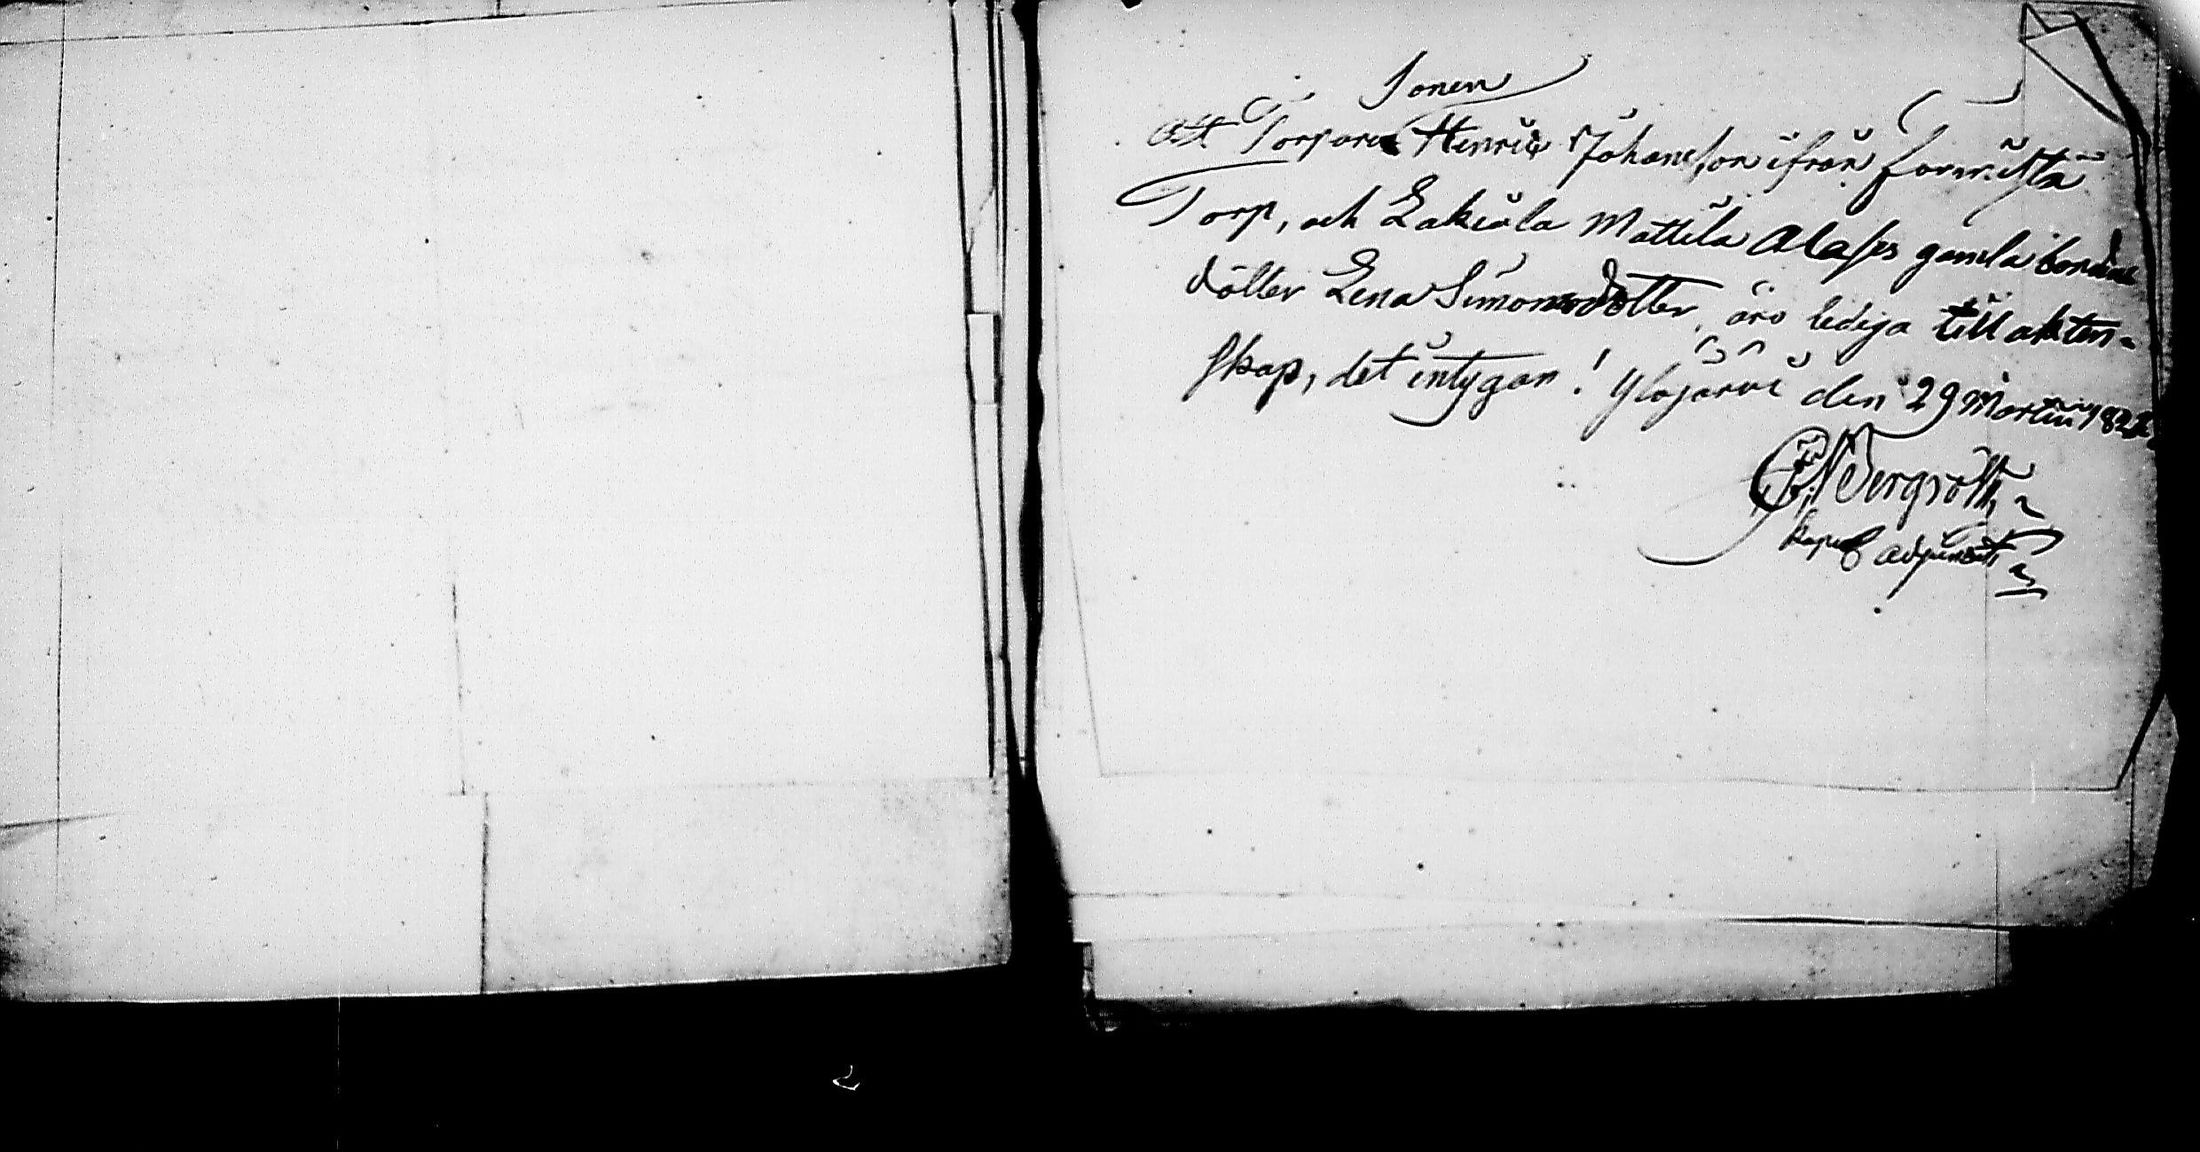 Sonen
Att Torpare Henric Johansson ifrån
Torp, och Lakiala Mattila Alases gamla bondens
dotter Lena Simonsdotter, äro lediga till äkten-
skap, det intygar! Ylöjärvi den 29 Martii 182
Bergroth
Kapell adjunct